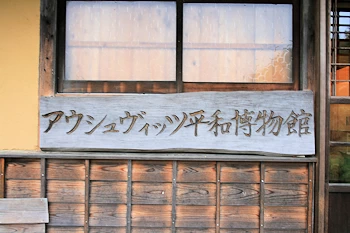 アウシュヴィッツ平和博物館